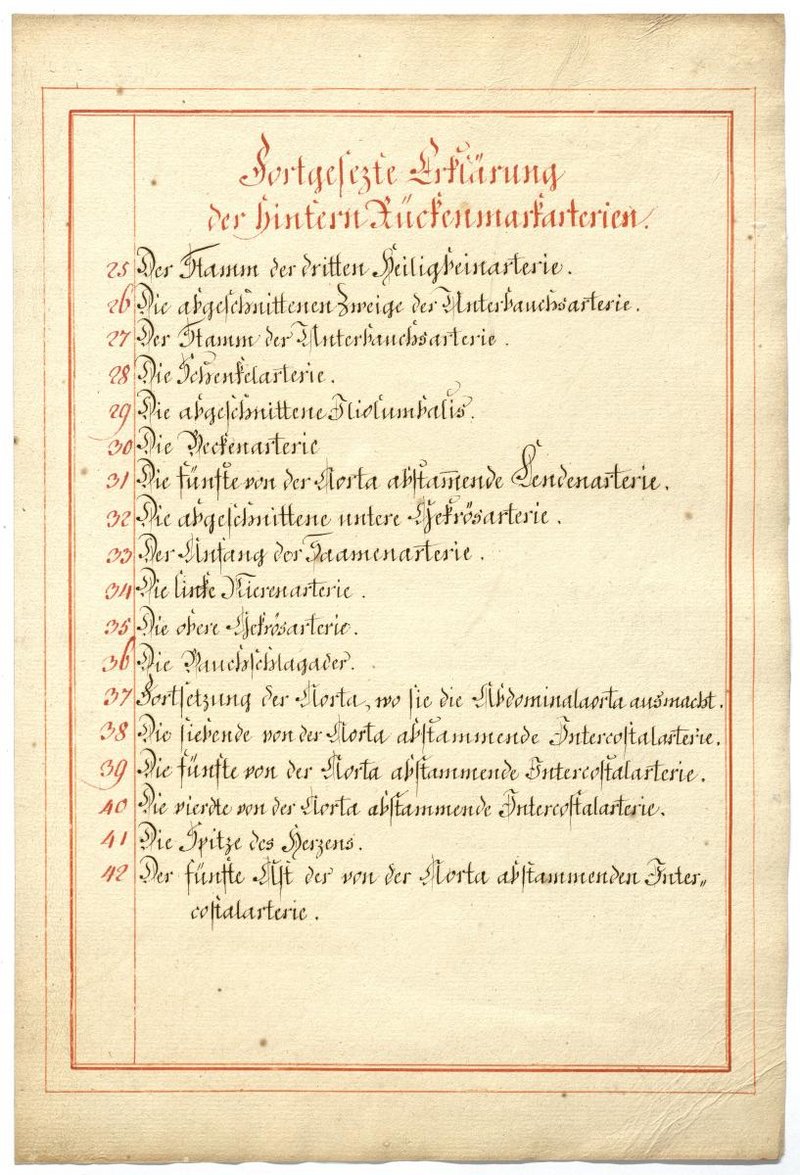 Fortgesezte Erklärung
der hintern Rückenmarkarterien.
25 Der Stamm der dritten Heiligbeinarterie.
26 Die abgeschnittenen Zweige der Unterbauchsarterie.
27 Der Stamm der Unterbauchsarterie.
28 Die Schenkelarterie.
29 Die abgeschnittene Iliolumbalis.
30 Die Beckenarterie
31 Die fünfte von der Aorta abstam̅ende Lendenarterie.
32 Die abgeschnittene untere Gekrösarterie.
33 Der Anfang der Saamenarterie.
34 Die linke Nierenarterie.
35 Die obere Gekrösarterie.
36 Die Bauchschlagader.
37 Fortsetzung der Aorta, wo sie die Abdominalaorta ausmacht.
38 Die siebende von der Aorta abstammende Intercostalarterie.
39 Die fünfte von der Aorta abstammende Intercostalarterie.
40 Die vierdte von der Aorta abstammende Intercostalarterie.
41 Die Spitze des Herzens.
42 Der fünfte Ast der von der Aorta abstammenden Inter„
costalarterie.